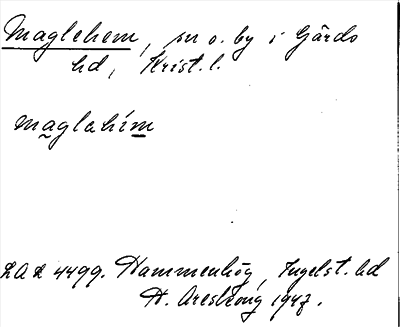 Maglehem, sn o. by i Gärds
hd, Krist. l.
maglahím
LAL 4499. Hammenhög, Ingelst. hd
H. Areskoug 1947.